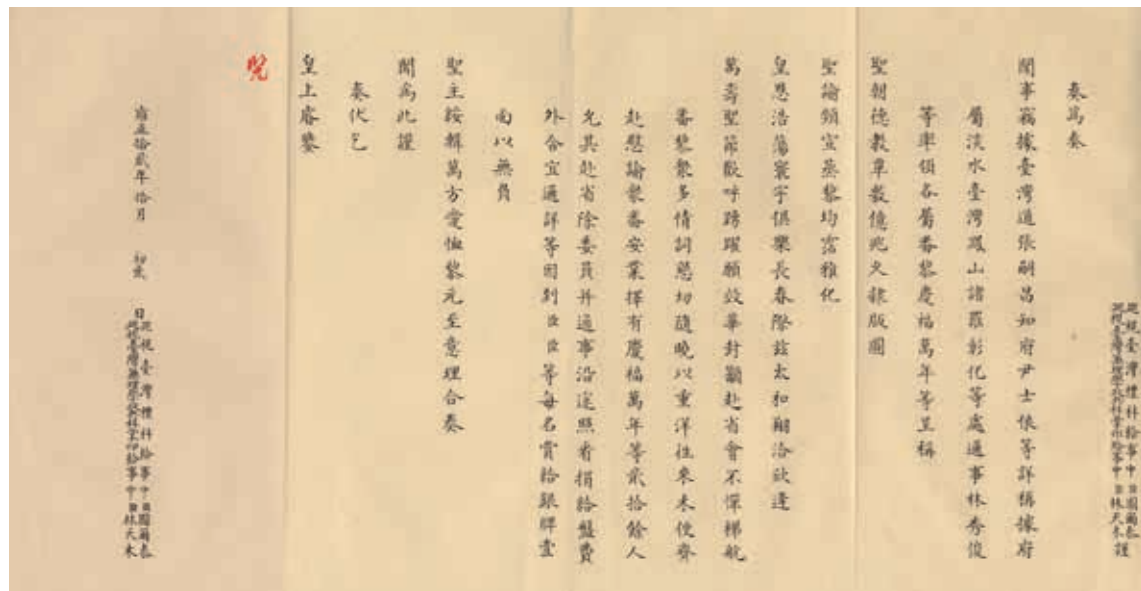 巡視臺灣禮科給事中臣圖爾泰
巡視臺灣兼理學政兵科掌印給事中臣林天木謹
奏為奏
聞事竊據臺灣道張嗣昌知府尹士俍等詳稱據府
屬淡水臺灣鳳山諸羅彰化等處通事林秀俊
等率領各屬番黎慶福萬年等呈稱
聖朝德教覃敷億兆久隸版圖
聖諭頒宣蒸黎均霑雅化
皇恩浩蕩寰宇俱樂長春際茲太和翔洽欣逢
萬壽聖節歡呼踴躍願效華封籲赴省會不憚梯航
番黎眾多情詞懇切隨曉以重洋往來未便齊
赴慰諭眾番安業擇有慶福萬年等貳拾餘人
允其赴省除委員并通事沿途照看捐給盤費
外合宜通詳等因到臣臣等每名賞給銀牌壹
面以無負
聖主綏輯萬方愛恤黎元至意理合奏
聞為此謹
奏伏乞
皇上睿鑒
覽
雍正拾貳年拾月 初貳 日巡視臺灣禮科給事中臣圖爾泰
巡視臺灣兼理學政兵科掌印給事中臣林天木